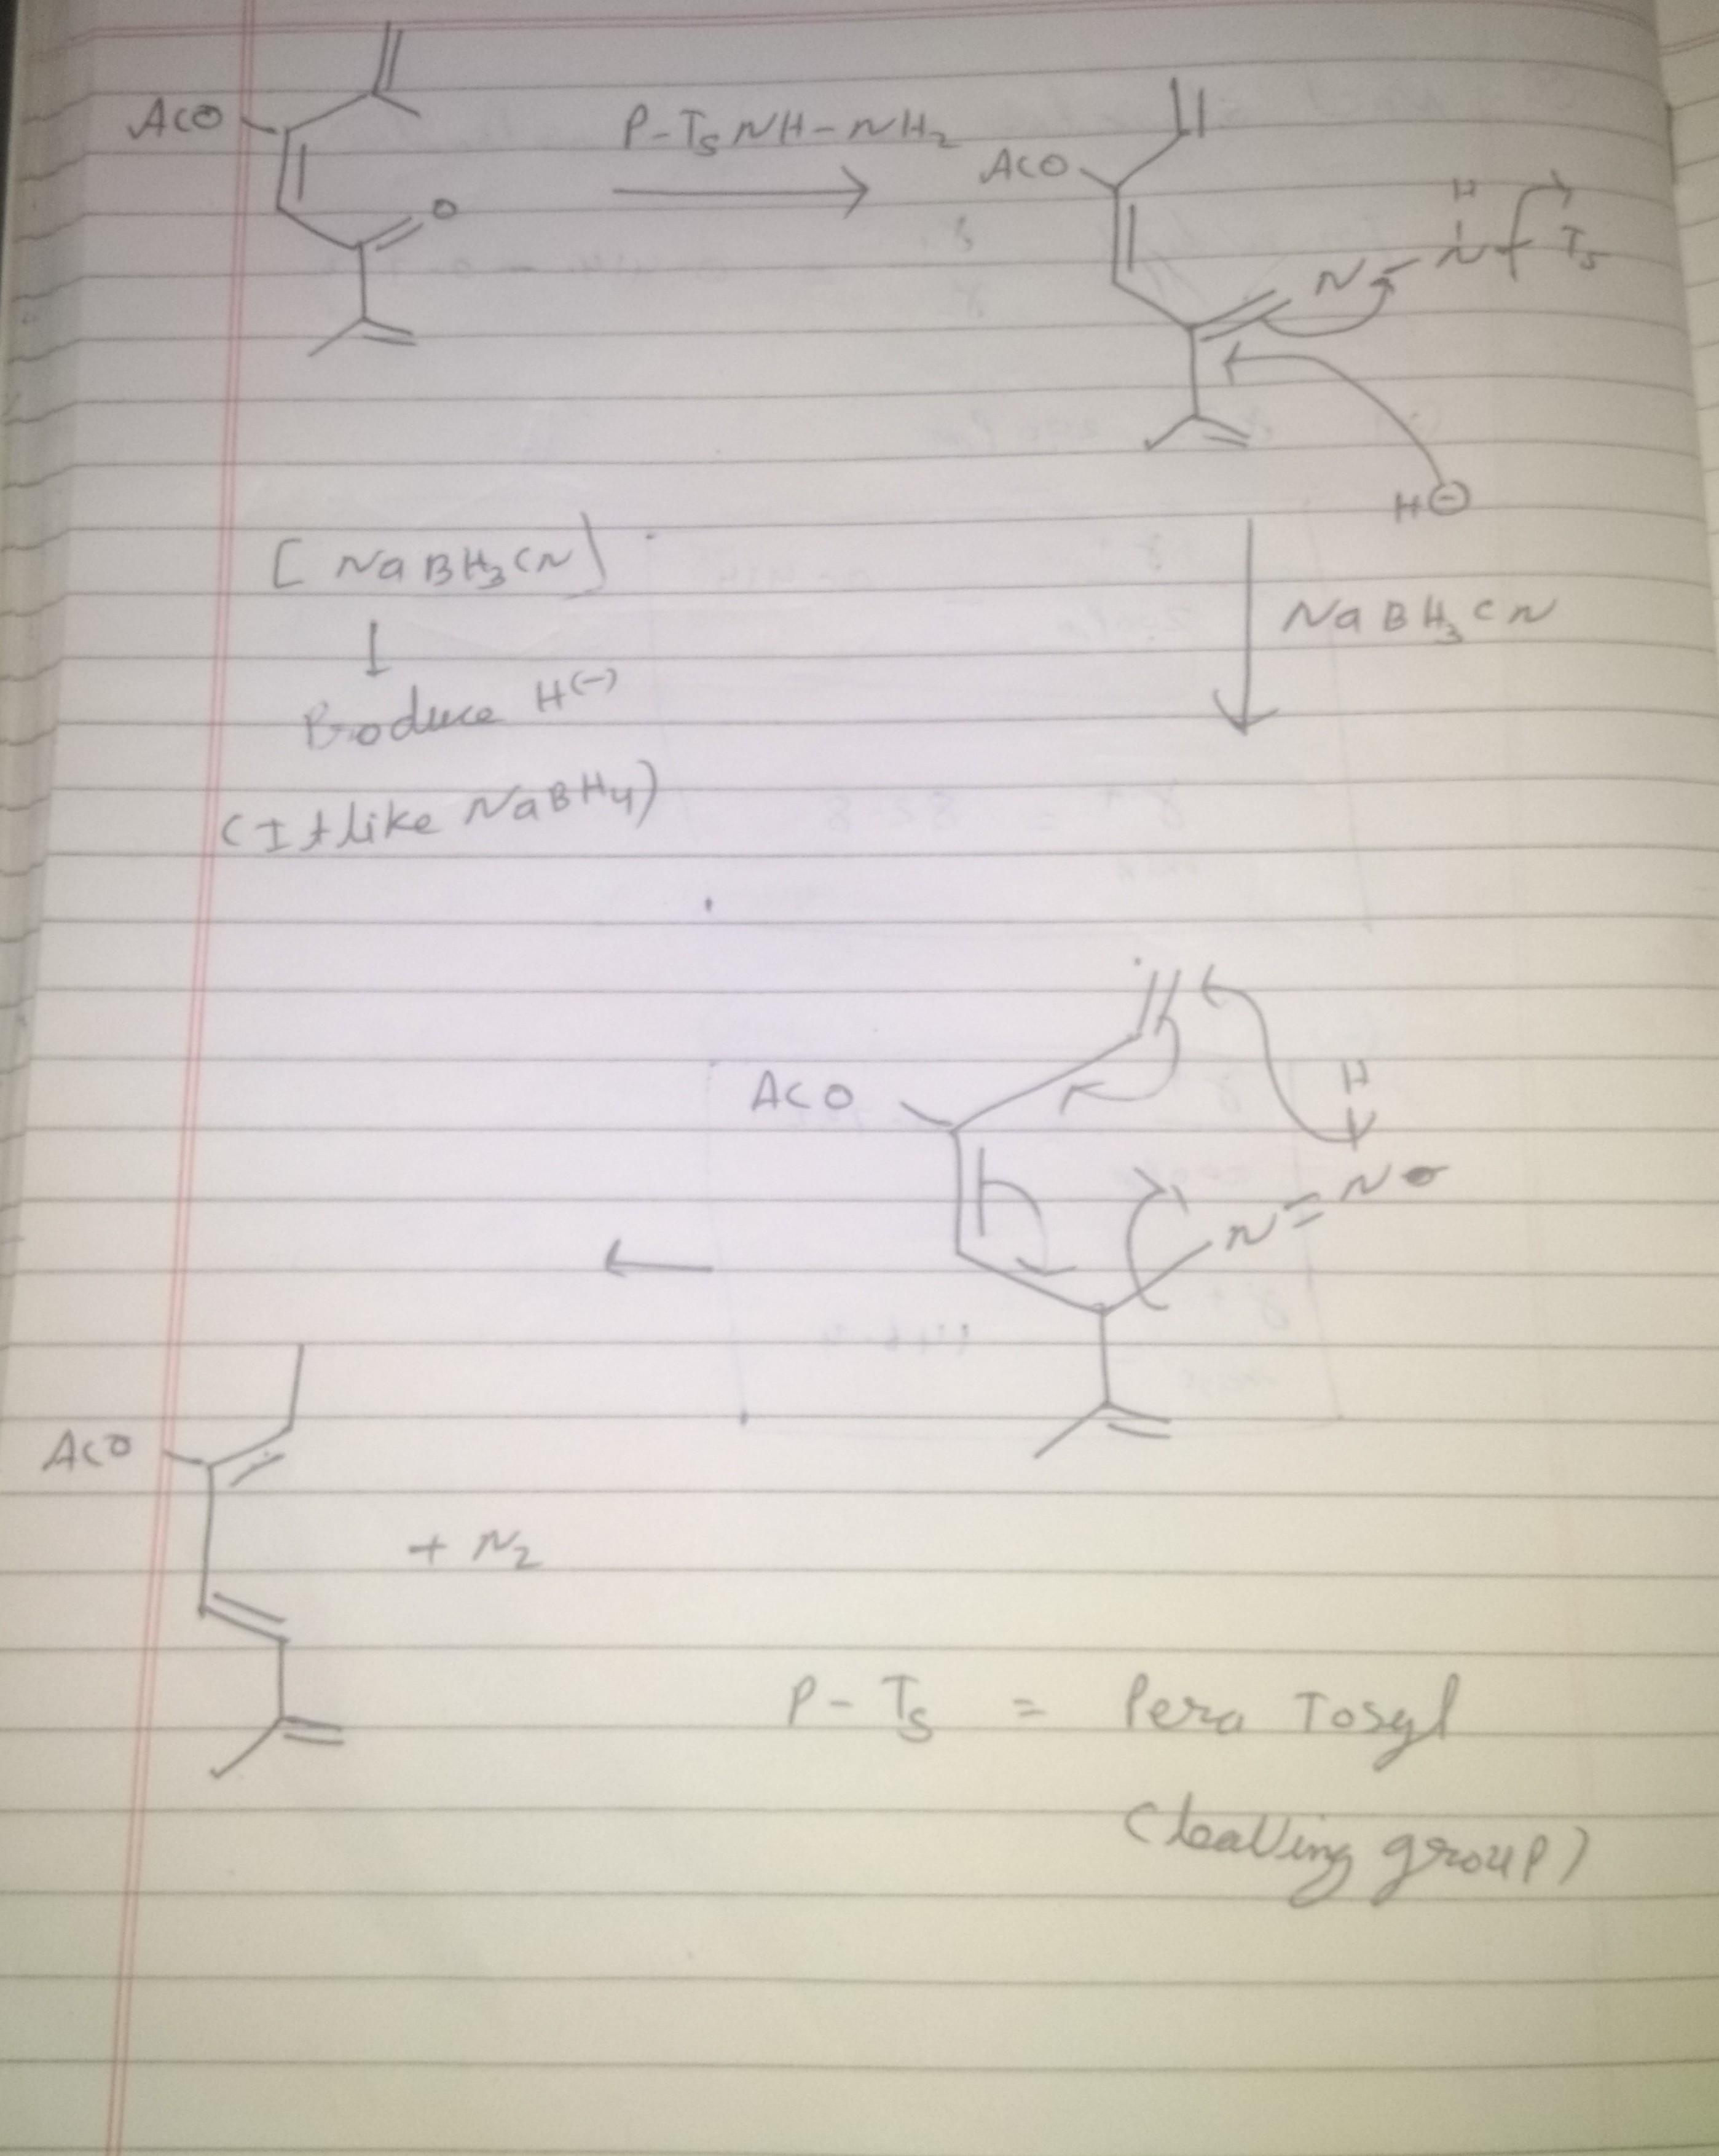 AcO
O
P-TsNH-NH2
AcO
N
H
N
Ts
H⊖
[NaBH3CN]
NaBH3CN
Produce H(-)
(It like NaBH4)
AcO
H
N=N
AcO
+ N2
P-Ts = Pera Tosyl
(leaving group)